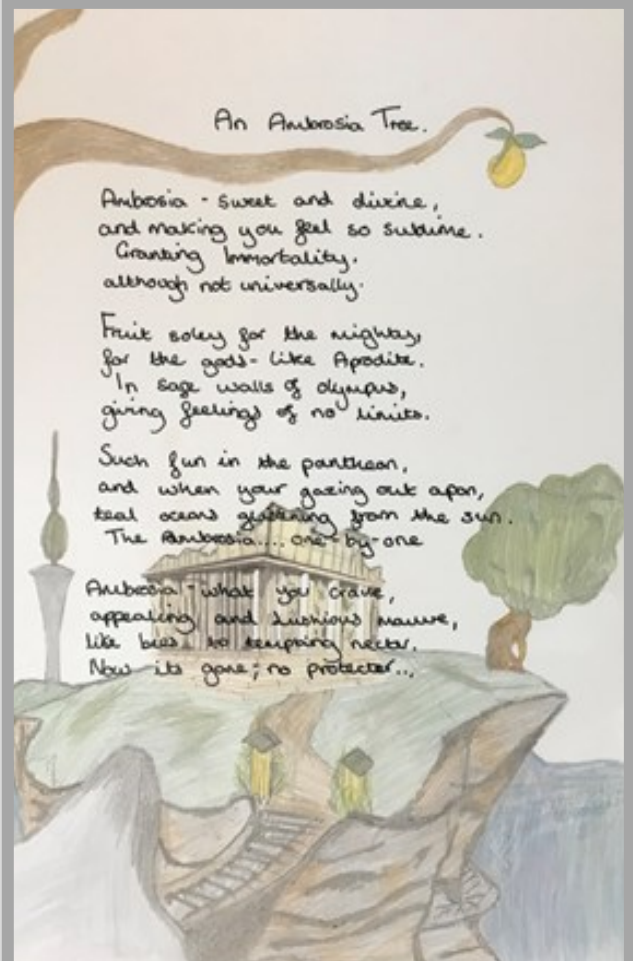 An Ambrosia Tree.
Ambrosia - sweet and divine,
and making you feel so sublime.
Granting Immortality.
although not universally.
Fruit soley for the mighty,
for the gods - like Aprodite.
In safe walls of olympus,
giving feelings of no limits.
Such fun in the pantheon,
and when your gazing out apon,
teal oceans glistening from the sun.
The Ambrosia.... one-by-one
Ambrosia - what you crave,
appealing and lushious mauve,
like bees to tempting nectar.
Now its gone; no protecter...